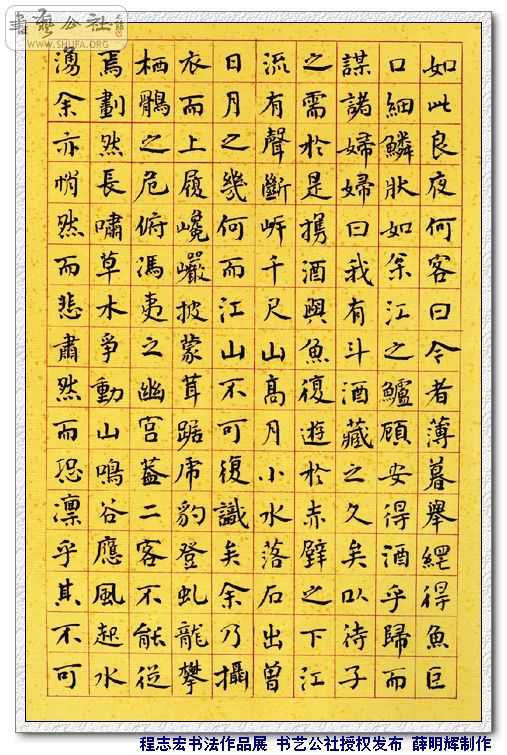 書藝公社
WWW.SHUFA.ORG
如此良夜何客曰今者薄暮舉網得魚巨
口細鱗狀如枀江之鱸顧安得酒乎歸而
謀諸婦婦曰我有斗酒藏之久矣以待子
之需於是携酒與魚復遊於赤壁之下江
流有聲斷岸千尺山高月小水落石出曾
日月之幾何而江山不可復識矣余乃攝
衣而上履巉巖披蒙茸踞虎豹登虬龍攀
栖鶻之危俯馮夷之幽宮蓋二客不能從
焉劃然長嘯草木爭動山鳴谷應風起水
湧余亦悄然而悲肅然而恐凜乎其不可
程志宏书法作品展 书艺公社授权发布 薛明辉制作